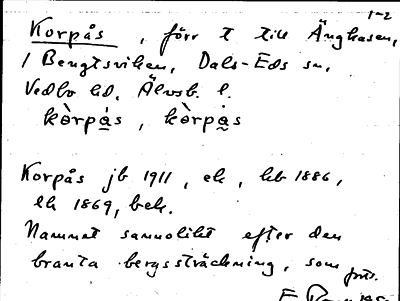 1-2
Korpås, förr t till Änghasen,
/ Bengtsviken, Dals-Eds sn,
Vedbo hd, Älvsb. l.
kò̀rpá̱s, kò̀rpȧ̱s
Korpås jb 1911, ek, hb 1886,
lk 1869, bek.
Namnet sannolikt efter den
branta bergssträckning, som forts.